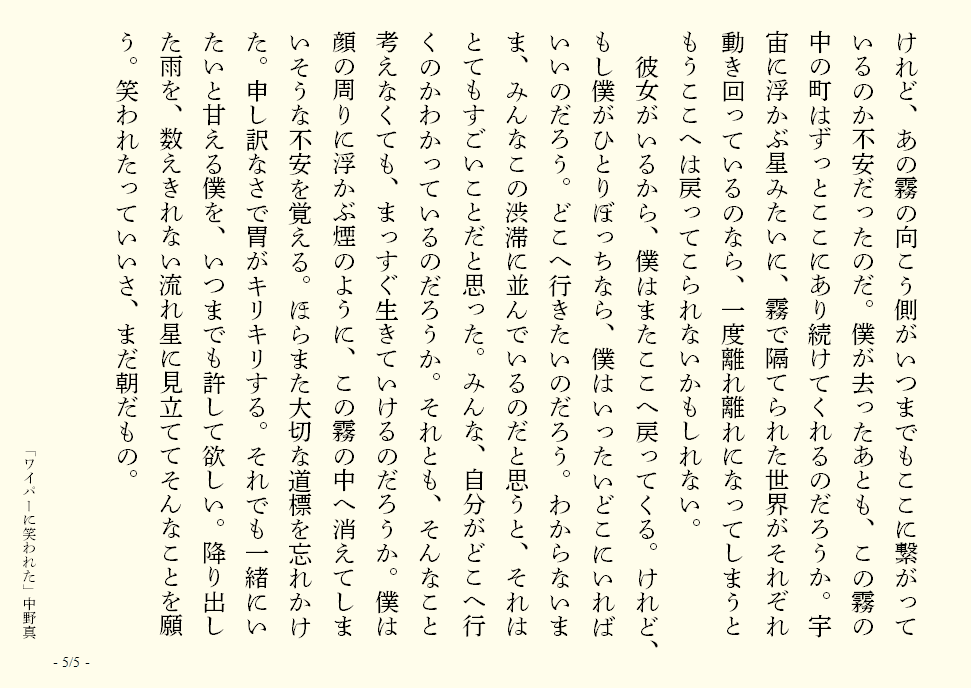 けれど、あの霧の向こう側がいつまでもここに繋がって
いるのか不安だったのだ。僕が去ったあとも、この霧の
中の町はずっとここにあり続けてくれるのだろうか。宇
宙に浮かぶ星みたいに、霧で隔てられた世界がそれぞれ
動き回っているのなら、一度離れ離れになってしまうと
もうここへは戻ってこられないかもしれない。
　彼女がいるから、僕はまたここへ戻ってくる。けれど、
もし僕がひとりぼっちなら、僕はいったいどこにいれば
いいのだろう。どこへ行きたいのだろう。わからないま
ま、みんなこの渋滞に並んでいるのだと思うと、それは
とてもすごいことだと思った。みんな、自分がどこへ行
くのかわかっているのだろうか。それとも、そんなこと
考えなくても、まっすぐ生きていけるのだろうか。僕は
顔の周りに浮かぶ煙のように、この霧の中へ消えてしま
いそうな不安を覚える。ほらまた大切な道標を忘れかけ
た。申し訳なさで胃がキリキリする。それでも一緒にい
たいと甘える僕を、いつまでも許して欲しい。降り出し
た雨を、数えきれない流れ星に見立ててそんなことを願
う。笑われたっていいさ、まだ朝だもの。
「ワイパーに笑われた」中野真
- 5/5 -